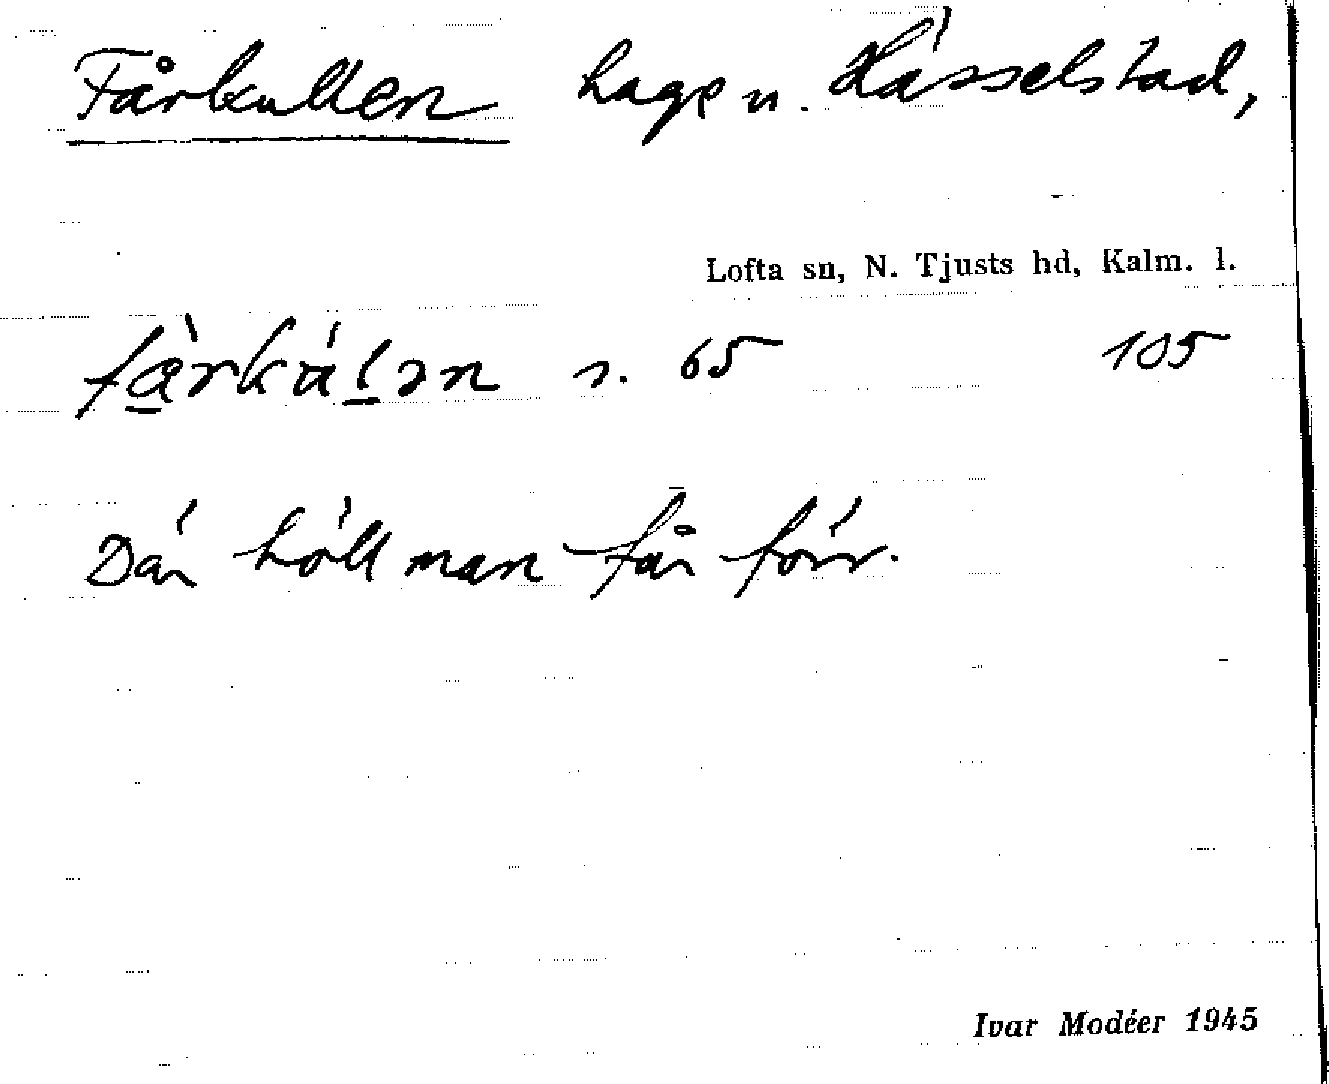 Fårkullen hage u. Hässelstad,
Lofta sn, N. Tjusts hd, Kalm. l.
s. 65 105
Där höll man får förr.
Ivar Modéer 1945